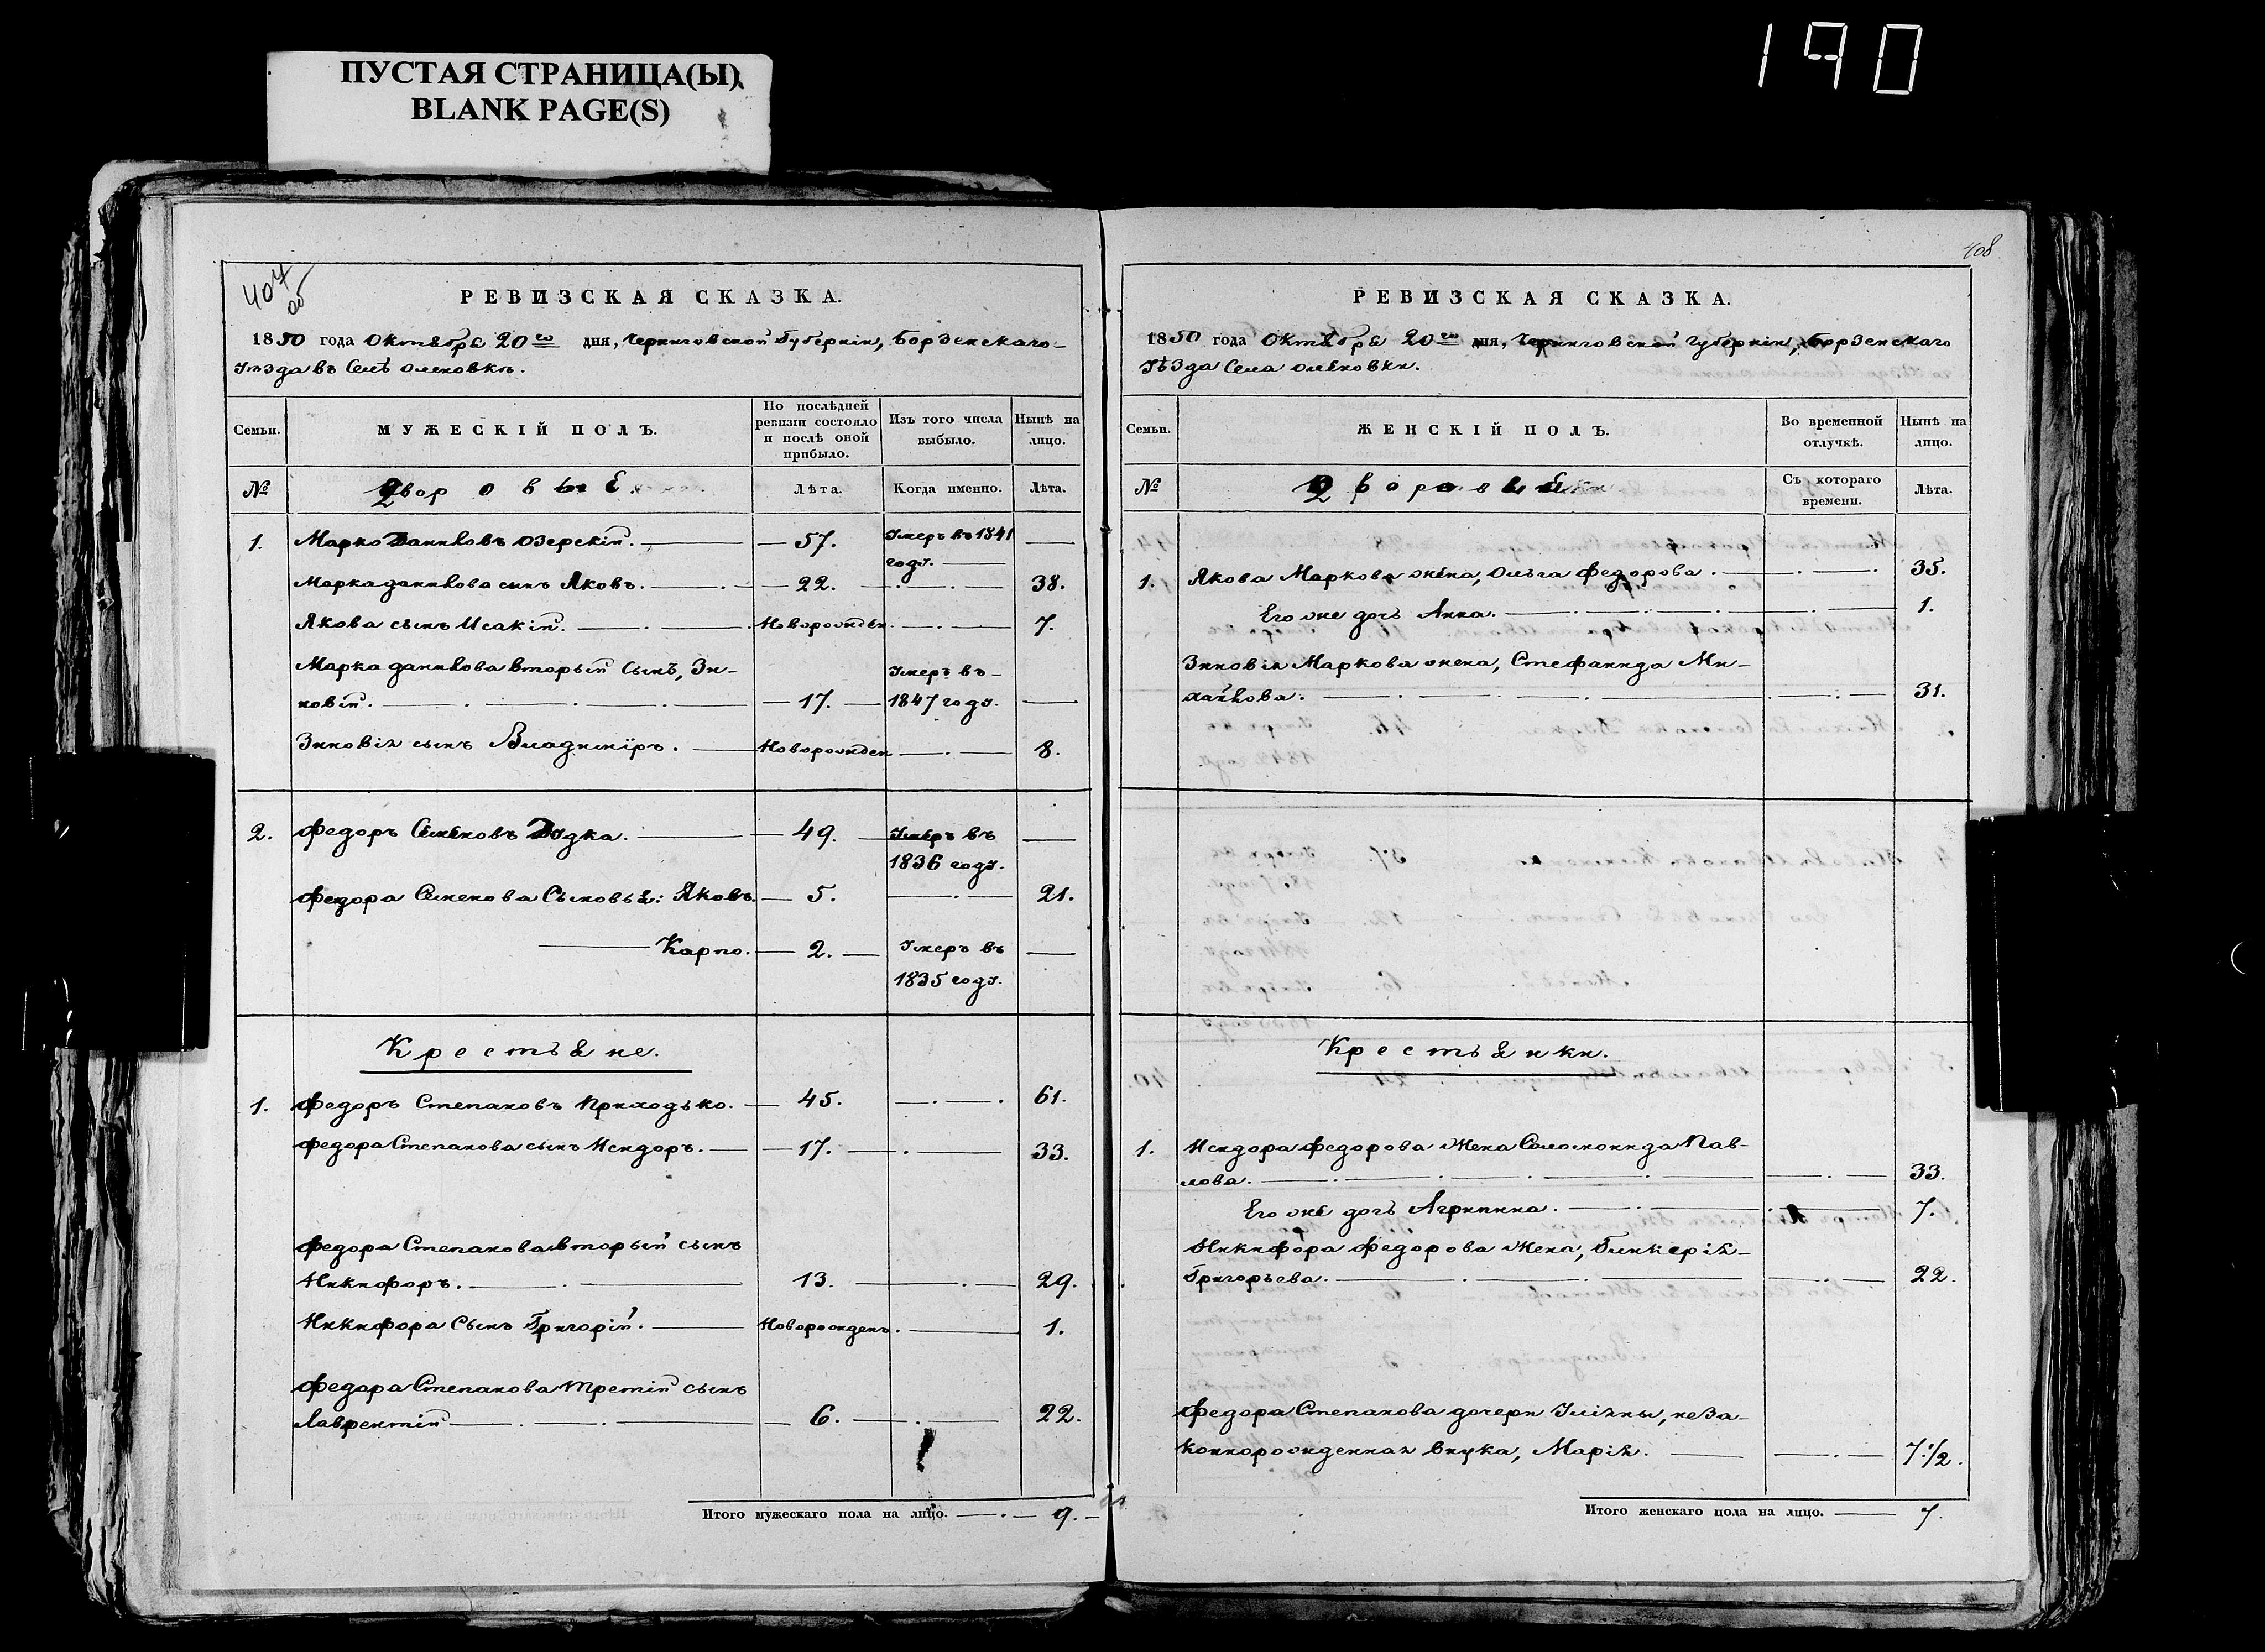 ПУСТАЯ СТРАНИЦА(Ы)
BLANK PAGE(S)
190
407 об
РЕВИЗСКАЯ СКАЗКА.
1850 года Октября 20го дня, Черниговской Губернiи, Борзенскаго
Уѣзда въ Селѣ Оленовкѣ.
Семьи.
МУЖЕСКIЙ ПОЛЪ.
По послѣдней
ревизiи состояло
и послѣ оной
прибыло.
Изъ того числа
выбыло.
Нынѣ на
лицо.
№
Дворовые.
Лѣта.
Когда именно.
Лѣта.
1. Марко Даниловъ Озерскiй. 57. Умеръ въ 1841
году.
Марка Данилова сынъ Яковъ. 22. 38.
Якова сынъ Исакiй. Новорожден. 7.
Марка Данилова вторый сынъ, Зи-
новiй. 17. Умеръ въ
1847 году.
Зиновiя сынъ Владимiръ. Новорожден 8.
2. Федоръ Семеновъ Дудка. 49. Умеръ въ
1836 году.
Федора Семенова Сыновья: Яковъ. 5. 21.
Карпо. 2. Умеръ въ
1835 году.
Крестьяне.
1. Федоръ Степановъ Приходько. 45. 61.
Федора Степанова сынъ Исидоръ. 17. 33.
Федора Степанова вторый сынъ
Никифоръ. 13. 29.
Никифора Сынъ Григорiй. Новорожденъ. 1.
Федора Степанова третiй сынъ
Лаврентiй 6. 22.
Итого мужескаго пола на лицо. 9.
408
РЕВИЗСКАЯ СКАЗКА.
1850 года Октября 20го дня, Черниговской Губернiи, Борзенскаго
Уѣзда Села Оленовки.
Семьи.
ЖЕНСКIЙ ПОЛЪ.
Во временной
отлучкѣ.
Нынѣ на
лицо.
№
Дворовыя
Съ котораго
времени.
Лѣта.
1. Якова Маркова жена, Ольга Федорова. 35.
Его же дочь Анна. 1.
Зиновiя Маркова жена, Стефанида Ми-
хайлова. 31.
Крестьянки.
1. Исидора Федорова Жена Соломонида Пав-
лова. 33.
Его же дочь Агрипина. 7.
Никифора Федорова Жена, Гликерiя
Григорьева. 22.
Федора Степанова дочери Улiяны, неза-
коннорожденная внука, Марiя. 7.1/2.
Итого женскаго пола на лицо. 7.